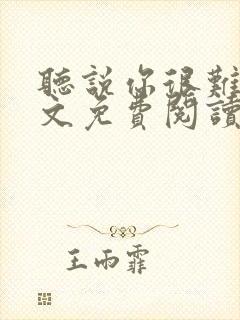 聽說你很難
文免費閱讀
王雨霏